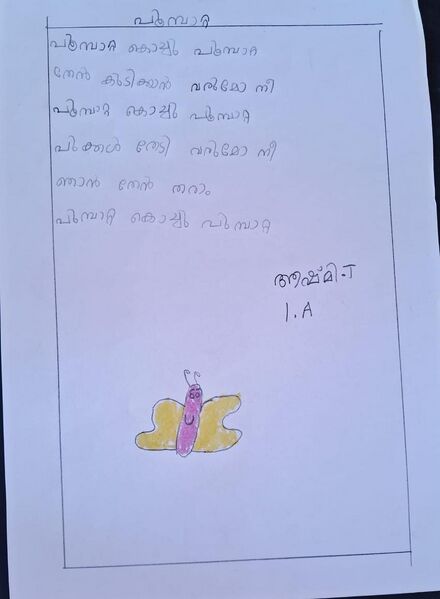 പൂമ്പാറ്റ
പൂമ്പാറ്റ കൊച്ചു പൂമ്പാറ്റ
തേൻ കുടിക്കാൻ വരുമോ നീ
പൂമ്പാറ്റ കൊച്ചു പൂമ്പാറ്റ
പൂക്കൾ തേടി വരുമോ നീ
ഞാൻ തേൻ തരാം
പൂമ്പാറ്റ കൊച്ചു പൂമ്പാറ്റ
ആഷ്മി-T
1.A